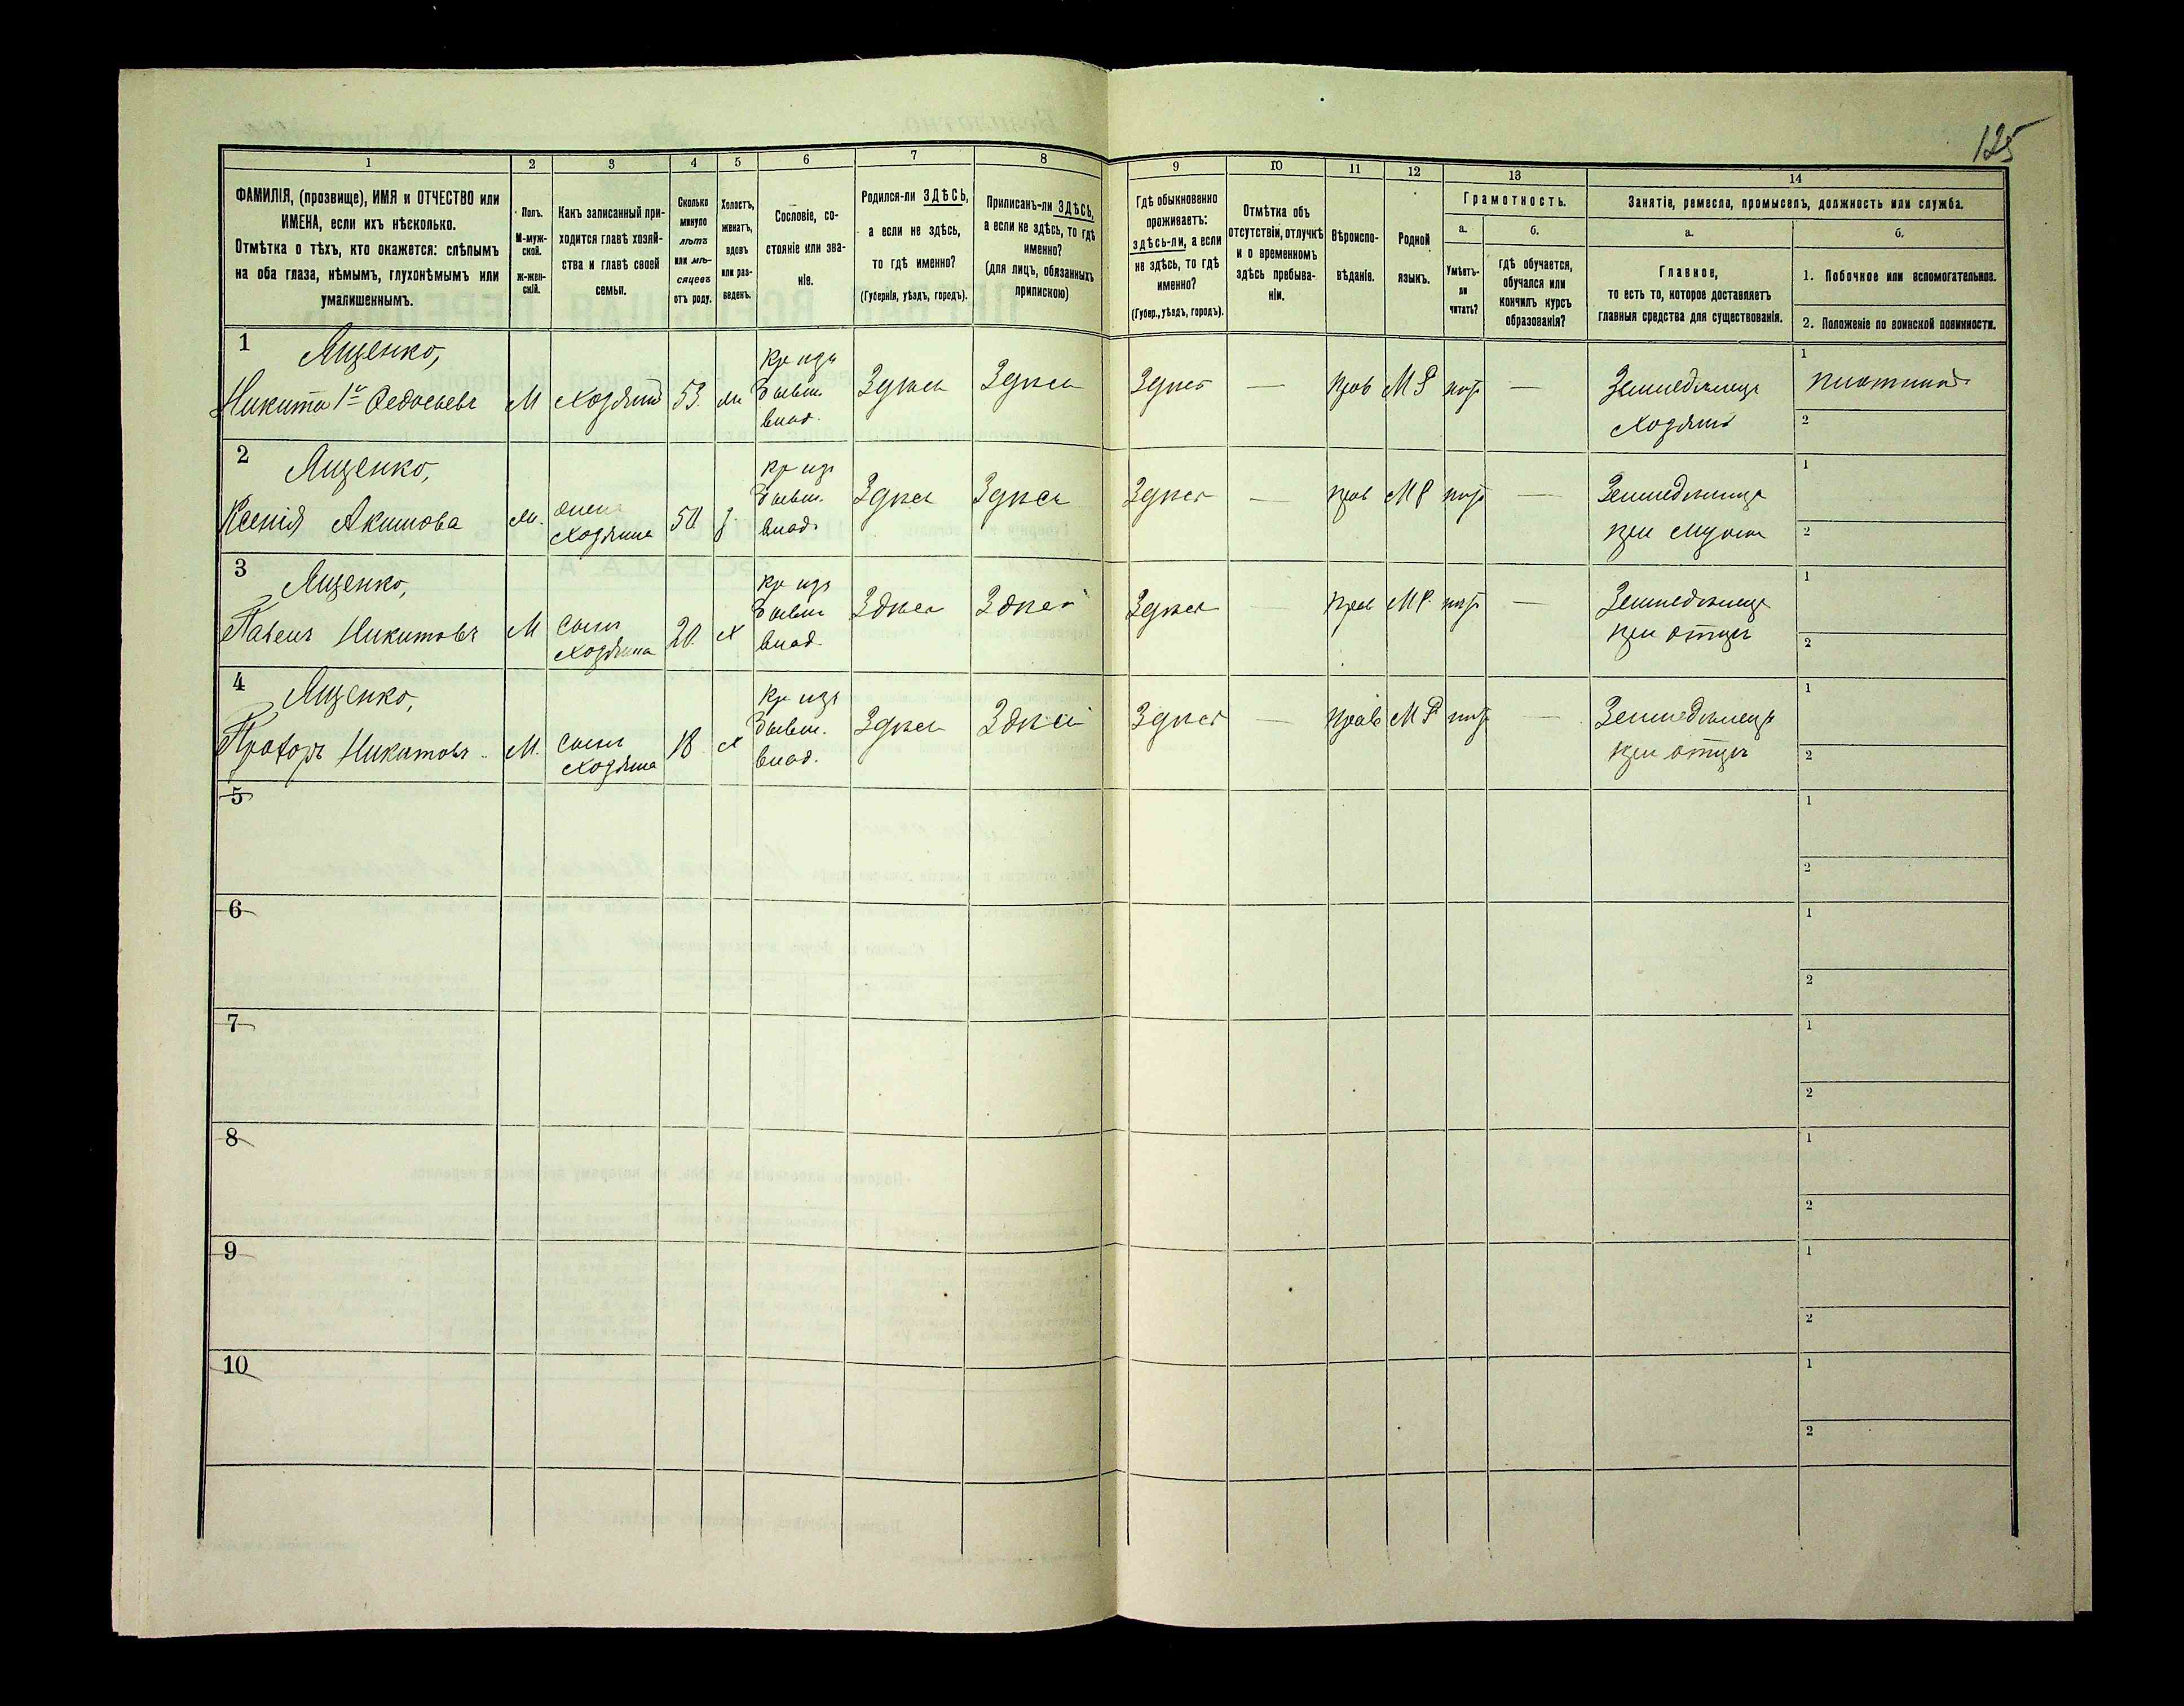 125
1 2 3 4 5 6 7 8 9 10 11 12 13 14
ФАМИЛІЯ, (прозвище), ИМЯ и ОТЧЕСТВО или
ИМЕНА, если ихъ нѣсколько.
Отмѣтка о тѣхъ, кто окажется: слѣпымъ
на оба глаза, нѣмымъ, глухонѣмымъ или
умалишеннымъ.
Полъ.
М-муж-
ской.
ж-жен-
скій.
Какъ записанный при-
ходится главѣ хозяй-
ства и главѣ своей
семьи.
Сколько
минуло
лѣтъ
или мѣ-
сяцевъ
отъ роду.
Холостъ,
женатъ,
вдовъ
или раз-
веденъ.
Сословіе, со-
стояніе или зва-
ніе.
Родился-ли ЗДѢСЬ,
а если не здѣсь,
то гдѣ именно?
(Губернія, уѣздъ, городъ).
Приписанъ-ли ЗДѢСЬ,
а если не здѣсь, то гдѣ
именно?
(для лицъ, обязанныхъ
припискою)
Гдѣ обыкновенно
проживаетъ:
здѣсь-ли, а если
не здѣсь, то гдѣ
именно?
(Губер., уѣздъ, городъ).
Отмѣтка объ
отсутствіи, отлучкѣ
и о временномъ
здѣсь пребыва-
ніи.
Вѣроиспо-
вѣданіе.
Родной
языкъ.
Грамотность.
а.
Умѣетъ-
ли
читать?
б.
гдѣ обучается,
обучался или
кончилъ курсъ
образованія?
Занятіе, ремесло, промыселъ, должность или служба.
а.
Главное,
то есть то, которое доставляетъ
главныя средства для существованія.
б.
1. Побочное или вспомогательное.
2. Положеніе по воинской повинности.
1 Ященко,
Никита 1й Федосьевъ М Хозяинъ 53
Кр изъ
бывш.
влад.
Здѣсь Здѣсь Здѣсь — Прав М Р —
Земледѣлецъ
Хозяинъ
1 плотникъ
2
2 Ященко,
Ксенія Акимова
жена
Хозяина
50
Кр изъ
бывш.
влад.
Здѣсь Здѣсь Здѣсь — Прав М Р —
при мужѣ
1
2
3 Ященко,
Павелъ Никитовъ М
Сынъ
Хозяина
20 Х
Кр изъ
бывш
влад.
Здѣсь Здѣсь Здѣсь — Прав М Р —
Земледѣлецъ
при отцѣ
1
2
4 Ященко,
Прохоръ Никитовъ М.
Сынъ
Хозяина
18 Х
Кр изъ
бывш.
влад.
Здѣсь Здѣсь Здѣсь — Прав М Р —
Земледѣлецъ
при отцѣ
1
2
5
1
2
6
1
2
7
1
2
8
1
2
9
1
2
10
1
2